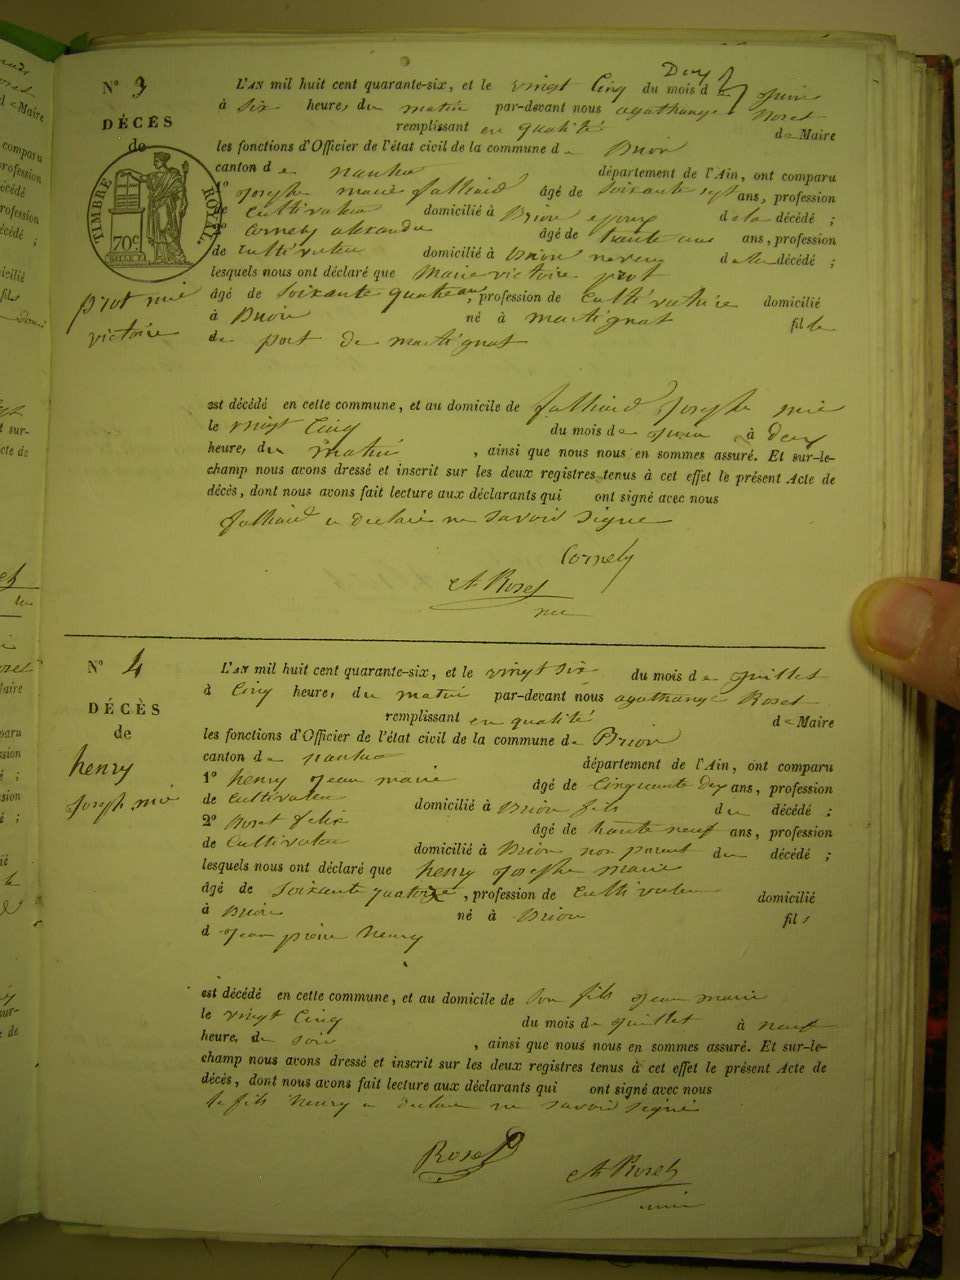 N° 3
DÉCÈS
de
TIMBRE ROYAL.
70c
prot mie
victoire
L'AN mil huit cent quarante-six, et le vingt Cinq du mois d juin
à six heures du matin par-devant nous agathange Roset
remplissant en qualité de Maire
les fonctions d'Officier de l'état civil de la commune de Brion
canton de nantua département de l'Ain, ont comparu
1° joseph marie falliard âgé de soixante sept ans, profession
de Cultivateur domicilié à Brion epoux de la décédé ;
2° Cornely alexandre âgé de trente ans, profession
de Cultivateur domicilié à Brion neveu de la décédé ;
lesquels nous ont déclaré que Marie victoire prot
âgé de soixante quatre ans, profession de Cultivatrice domicilié
à Brion né à martignat fille
de port de martignat
est décédé en celle commune, et au domicile de falliard joseph mie
le vingt Cinq du mois de juin à deux
heure, du matin , ainsi que nous nous en sommes assuré. Et sur-le-
champ nous avons dressé et inscrit sur les deux registres tenus à cet effet le présent Acte de
décès, dont nous avons fait lecture aux déclarants qui ont signé avec nous
falliard a declaré ne savoir signe
Cornely
At Roset
N° 4
DÉCÈS
de
henry
joseph mie
L'AN mil huit cent quarante-six, et le vingt six du mois de juillet
à Cinq heure, du matin par-devant nous agathange Roset
remplissant en qualité de Maire
les fonctions d'Officier de l'état civil de la commune de Brion
canton de nantua département de l'Ain, ont comparu
1° henry jean marie âgé de Cinquante deux ans, profession
de Cultivateur domicilié à Brion fils du décédé ;
2° Roset felix âgé de trente neuf ans, profession
de Cultivateur domicilié à Brion non parent du décédé ;
lesquels nous ont déclaré que henry joseph marie
âgé de soixante quatorze, profession de Cultivateur domicilié
à Brion né à Brion fils
d jean pierre henry
est décédé en cette commune, et au domicile de son fils jean marie
le vingt Cinq du mois de juillet à neuf
heure, de soir , ainsi que nous nous en sommes assuré. Et sur-le-
champ nous avons dressé et inscrit sur les deux registres tenus à cet effet le présent Acte de
décès, dont nous avons fait lecture aux déclarants qui ont signé avec nous
le fils henry a declare ne savoir signé
Roset
At Roset